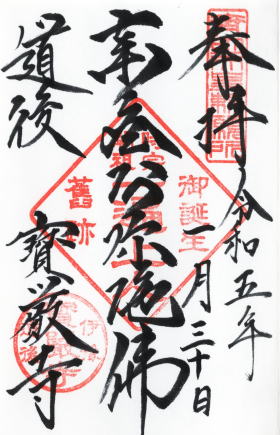 奉拝 令和五年
一月三十日
南無阿弥陀佛
道後 寶厳寺
御誕生
舊跡